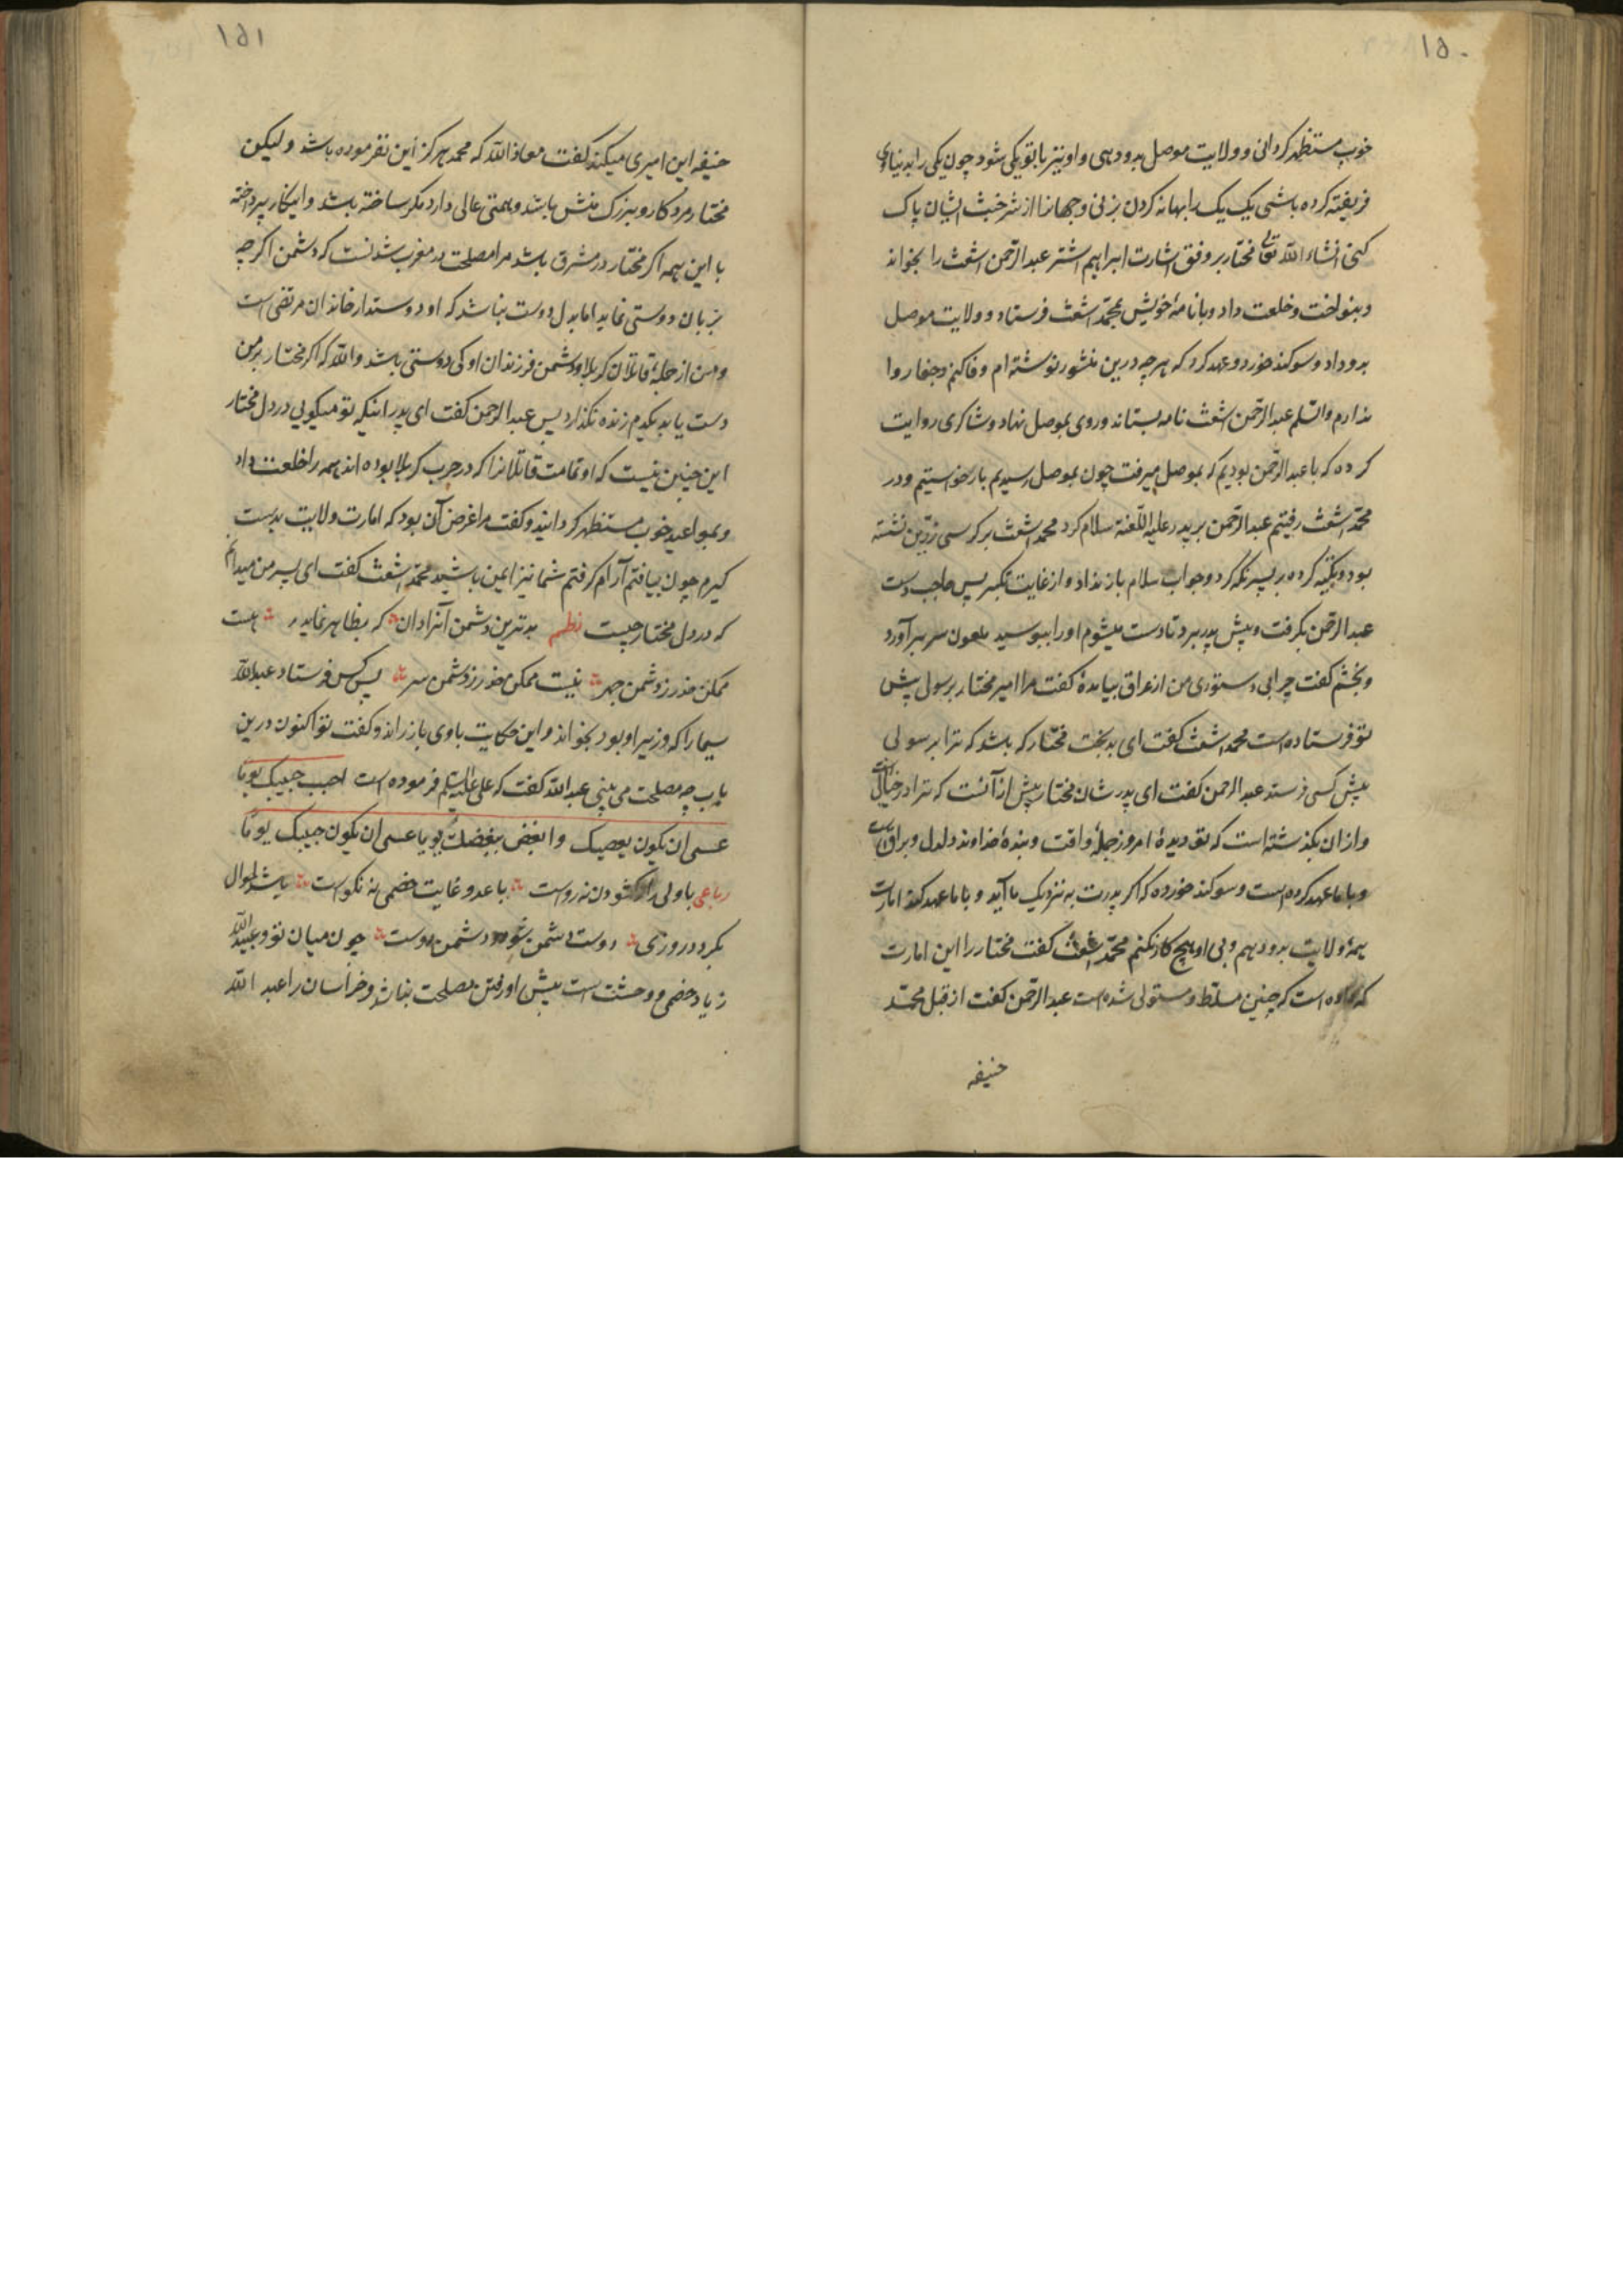 ۱۵۰
خوب مستظهر کردانی و ولایت موصل بدو دهی و او نیز با تو یکی شود چون یکی را بدنیاوی
فریفته کرده باشی یک یک را بهانه کردن بزنی و جهانرا از شر خبث ایشان پاک
کنی انشاء الله تعالی مختار بر وفق اشارت ابراهیم اشتر عبد الرحمن اشعث را بخواند
و بنواخت و خلعت داد و با نامهٔ خویش بمحمد اشعث فرستاد و ولایت موصل
بدو داد و سوکند خورد و عهد کرد که هرچه درین منشور نوشته ام وفا کنم و جفا روا
ندارم والسلم عبد الرحمن اشعث نامه بستاند و روی بموصل نهاد و شاکری روایت
کرده که با عبد الرحمن بودیم که بموصل میرفت چون بموصل رسیدیم بار خواستیم و در
محمد اشعث رفتیم عبد الرحمن بر پدر علیه اللعنه سلام کرد محمد اشعث بر کرسی زرین نشسته
بود و تکیه کرده بر پسر نکه کرد و جواب سلام باز نداد و از غایت تکبر پس حاجب دست
عبد الرحمن بکرفت و پیش پدر برد تا دست میشوم او را ببوسید ملعون سر برآورد
و بخشم کفت چرا بی دستوری من از عراق بیامدهٔ کفت مرا امیر مختار برسولی پیش
تو فرستاده است محمد اشعث کفت ای بدبخت مختار که باشد که ترا برسولی
پیش کسی فرستد عبد الرحمن کفت ای پدر شان مختار بیش از آنست که ترا در خیال است
و از ان بکذشته است که تو دیدهٔ امروز جملهٔ وافت و بندهٔ خداوند دلدل و براق است
و با ما عهد کرده است و سوکند خورده که اکر پدرت به نزدیک ما آید و با ما عهد کند امارت
همهٔ ولایت بدو دهیم و بی او هیچ کار نکنم محمد اشعث کفت مختار را این امارت
که داده است که چنین مسلط و مستولی شده است عبد الرحمن کفت از قبل محمد
حنیفه
۱۵۱
حنیفه این امیری میکند کفت معاذ الله که محمد هرکز این نفرموده باشد ولیکن
مختار مرد کار و بزرک منش باشد و همتی عالی دارد مکر ساخته باشد و اینکار پرداخته
با این همه اکر مختار در مشرق باشد مرا مصلحت در مغرب شدنست که دشمن اکرچه
بزبان دوستی نماید اما بدل دوست نباشد که او دوستدار خاندان مرتضی است
و من از جملهٔ قاتلان کربلا و دشمن فرزندان او کی دوستی باشد والله که اکر مختار بر من
دست یابد یکدم زنده نکذارد پس عبد الرحمن کفت ای پدر اینکه تو میکویی در دل مختار
این چنین نیست که او تمامت قاتلانرا که در حرب کربلا بوده اند همه را خلعت داد
و بمواعید خوب مستظهر کردانید و کفت مرا غرض آن بود که امارت ولایت بدست
کیرم چون بیافتم آرام کرفتم شما نیز ایمن باشید محمد اشعث کفت ای پسر من میدانم
که در دل مختار چیست نظم بدترین دشمن آنرا دان که بظاهر نماید هست
ممکن حذر ز دشمن جهر نیست ممکن حذر ز دشمن سر پس کس فرستاد عبدالله
سیما را که وزیر او بود بخواند و این حکایت با وی باز راند و کفت تو اکنون درین
باب چه مصلحت می بینی عبد الله کفت که علی علیه السلم فرموده است احبب حبیبک یوما
عسی ان یکون بعضیک وابغض بغضک یوما عسی ان یکون حبیبک یوما
رباعی با ولی راز کشودن نه رواست با عدو غایت خصمی نه نکوست احوال
بکردد روزی دوست دشمن شود و دشمن دوست چون میان تو و عبید الله
زیاد خصمی و وحشت است پیش او رفتن مصلحت نباشد و خراسان را عبد الله